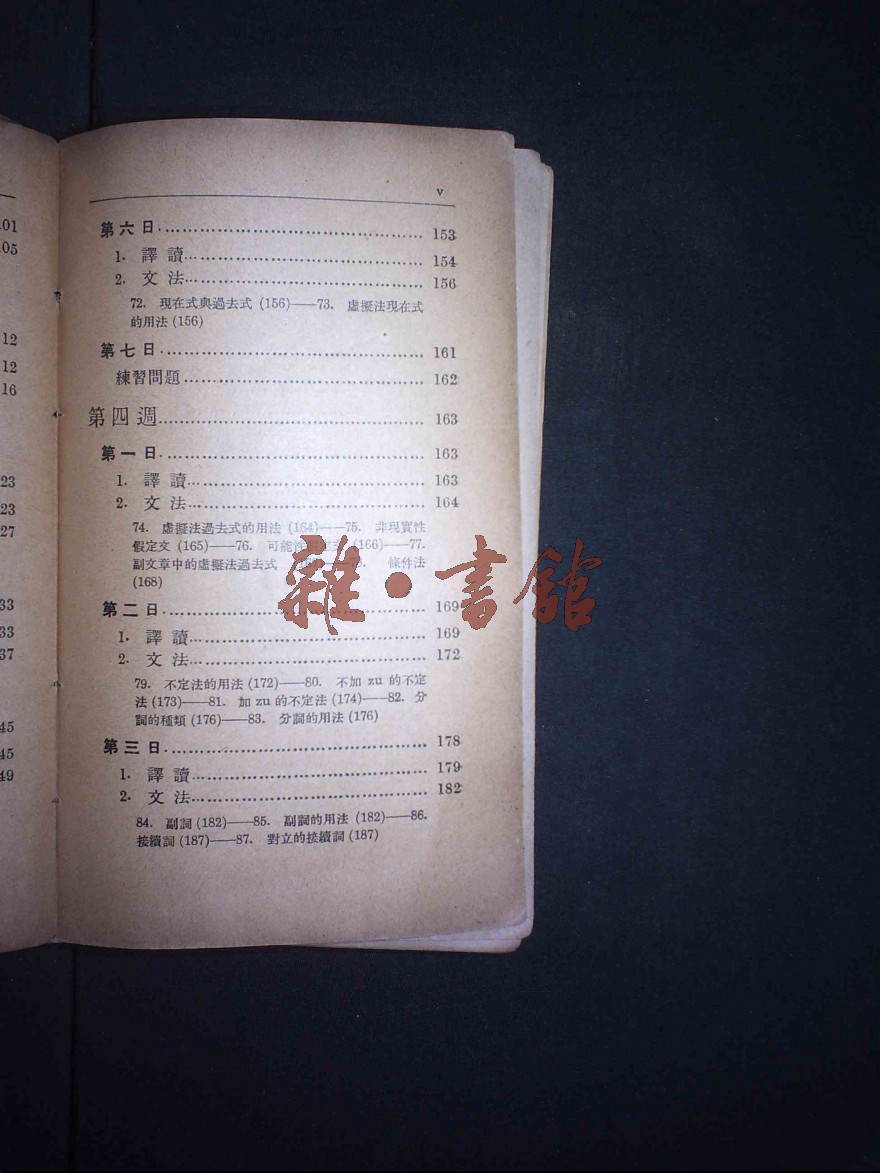 01
05
12
12
16
23
23
27
33
33
37
45
45
49
v
第六日 153
1. 譯讀 154
2. 文法 156
72. 現在式與過去式 (156)——73. 虛擬法現在式
的用法 (156)
第七日 161
練習問題 162
第四週 163
第一日 163
1. 譯讀 163
2. 文法 164
74. 虛擬法過去式的用法 (164)——75. 非現實性
假定文 (165)——76. 可能性 (166)——77.
副文章中的虛擬法過去式 條件法
(168)
第二日 169
1. 譯讀 169
2. 文法 172
79. 不定法的用法 (172)——80. 不加 zu 的不定
法 (173)——81. 加 zu 的不定法 (174)——82. 分
詞的種類 (176)——83. 分詞的用法 (176)
第三日 178
1. 譯讀 179
2. 文法 182
84. 副詞 (182)——85. 副詞的用法 (182)——86.
接續詞 (187)——87. 對立的接續詞 (187)
雜·書館